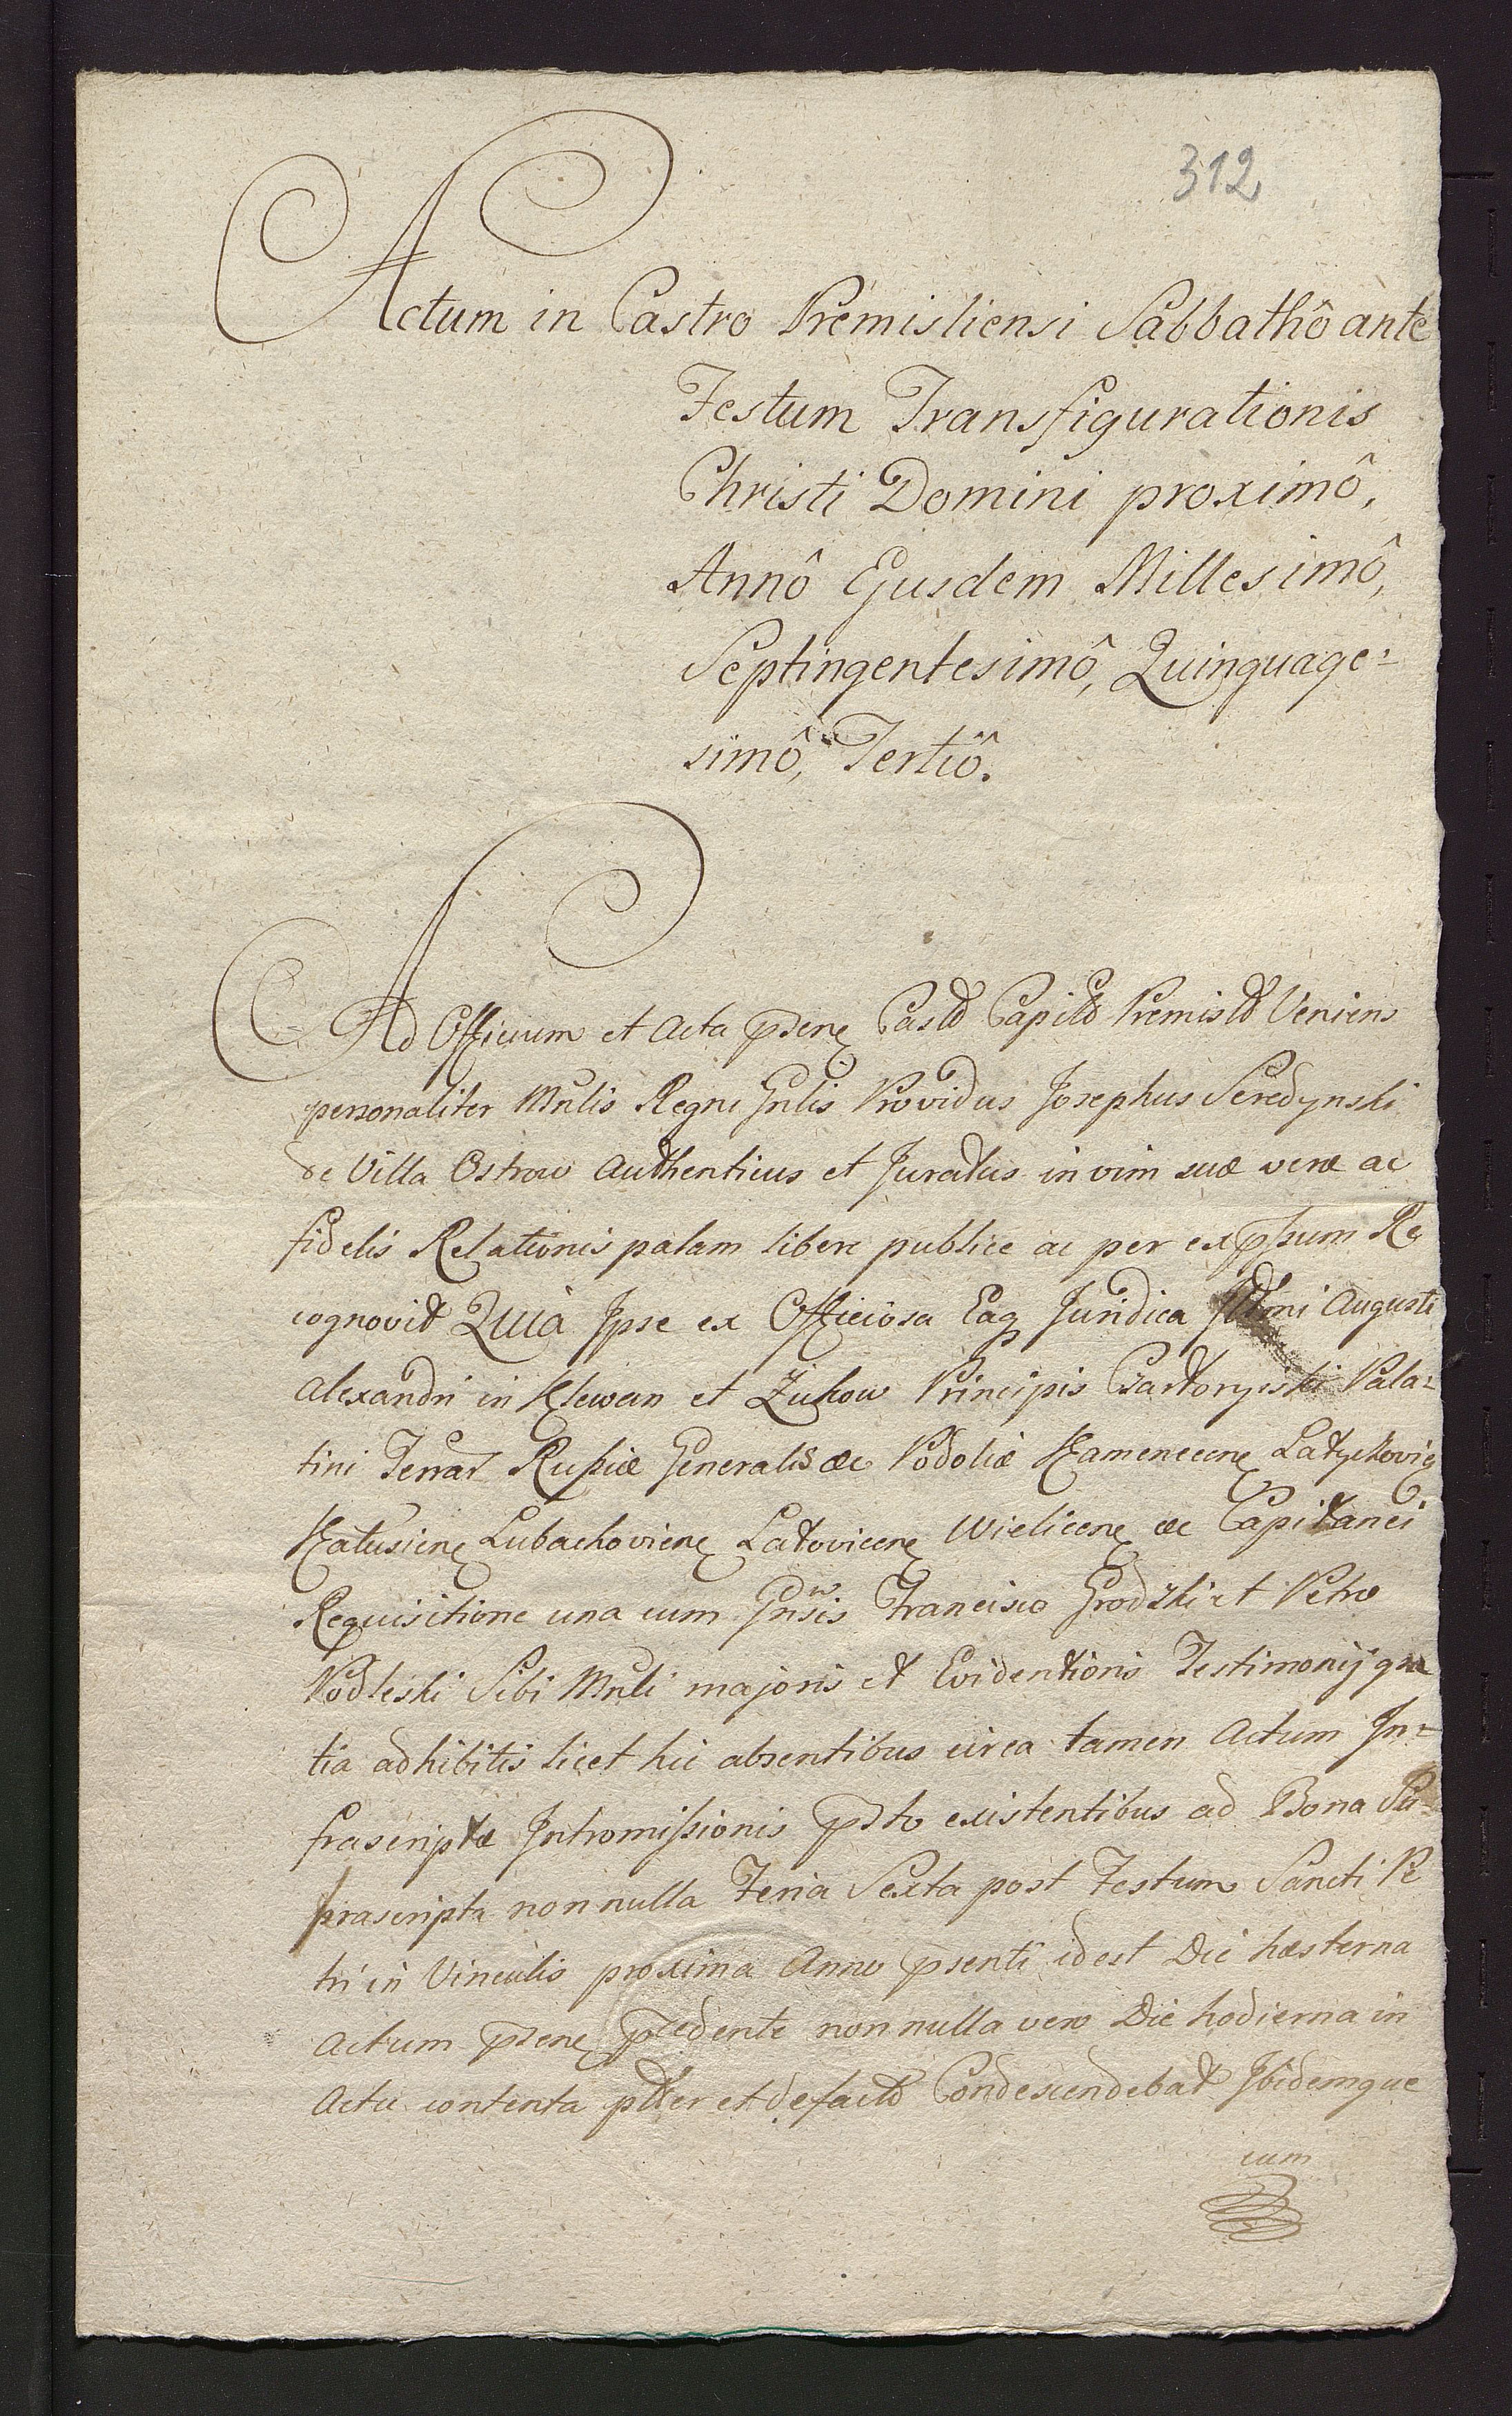 312
Actum in Castro Premisliensi Sabbathô ante
Festum Transfigurationis
Christi Domini proximô,
Annô Ejusdem Millesimô,
Septingentesimô, Quinquage=
simô, Tertiô.
Ad Officium et Acta Castr Capit Premisl Veniens
personaliter Mnlis Regni Gnlis Providus Josephus Seredynski
de Villa Ostrow Authenticus et Juratus in vim suæ veræ ac
fidelis Relationis palam libere publice ac per expssum Re
cognovit Quia Ipse ex Officiosa Eaq Juridica Augusti
Alexandri in Klewan et Zukow Principis Czartoryiski Pala=
tini Terrar Russiæ Generalis æc Podoliæ Kamenecen Latychovien
Kalusien Lubachovien Latovicen Wielicen æc Capitanei
Requisitione una cum Gnsis Francisco Grodzki et Petro
Podleski Sibi Mnli majoris et Evidentioris Testimonij gra
tia adhibitis licet hic absentibus circa tamen Actum In=
frascriptæ Intromissionis existentibus ad Bona In=
frascripta nonnulla Feria Sexta post Festum Sancti Pe
tri in Vinculis proxima Anno psenti idest Die hæsterna
Actum psen pcedente nonnulla vero Die hodierna in
Actu contenta et defacto Condescendebat Ibidemque
cum